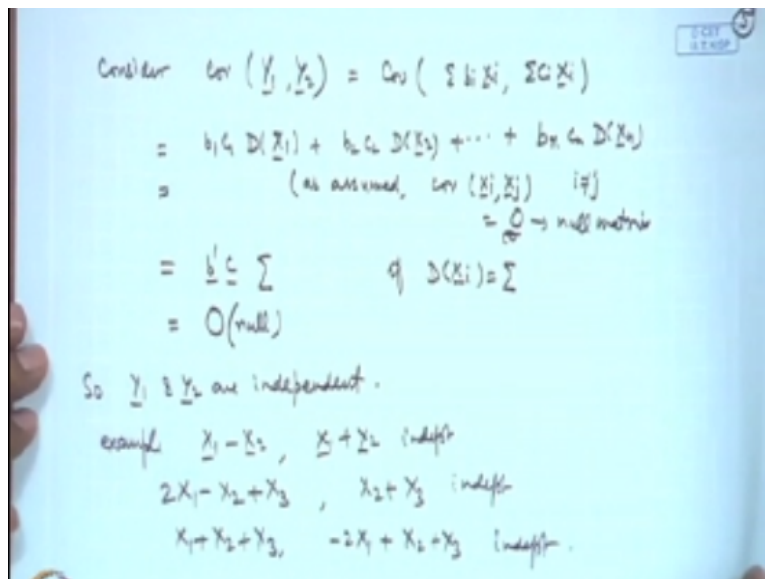 5
Consider Cov (Y1, Y2) = Cov ( Σ bi Xi, Σ Ci Xi )
= b1 c1 D(X1) + b2 c2 D(X2) + ··· + bn cn D(Xn)
= (as assumed, cov (Xi, Xj) i≠j
= O → null matrix
= b' c Σ if D(Xi) = Σ
= O (null)
So Y1 & Y2 are independent.
example X1 - X2, X1 + X2 indept
2X1 - X2 + X3, X2 + X3 indept
X1 + X2 + X3, -2X1 + X2 + X3 indept.